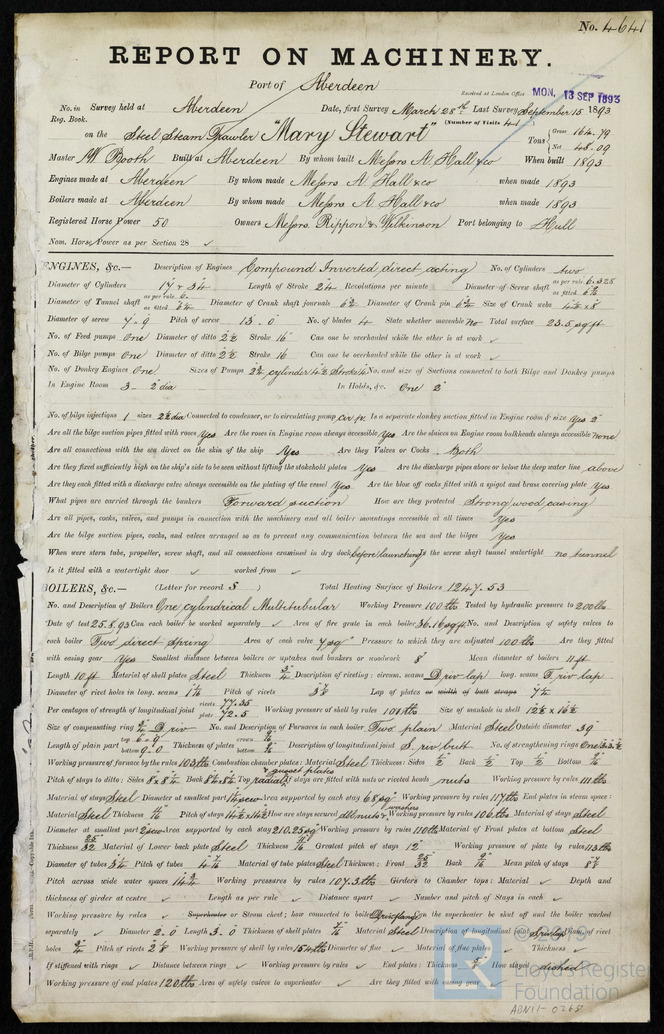 No. 4641
REPORT ON MACHINERY.
Port of Aberdeen
Received at London Office MON, 13 SEP 1893
No. in Survey held at Aberdeen Date, first Survey March 28th Last Survey September 15 1893
Reg. Book. (Number of Visits 41)
on the Steel Steam Trawler "Mary Stewart" Tons Gross 164.79 Net 48.09
Master W Booth Built at Aberdeen By whom built Messrs A. Hall & co When built 1893
Engines made at Aberdeen By whom made Messrs A Hall & co when made 1893
Boilers made at Aberdeen By whom made Messrs A. Hall & co when made 1893
Registered Horse Power 50 Owners Messrs. Rippon & Wilkinson Port belonging to Hull
Nom. Horse Power as per Section 28 ✓
ENGINES, &c.— Description of Engines Compound Inverted direct acting No. of Cylinders two
Diameter of Cylinders 17 & 34 Length of Stroke 24 Revolutions per minute Diameter of Screw shaft as per rule 6.325 as fitted
Diameter of Tunnel shaft as per rule as fitted Diameter of Crank shaft journals Diameter of Crank pin Size of Crank webs
Diameter of screw 7-9 Pitch of screw 13.0 No. of blades 4 State whether moveable No Total surface 23.5 sq ft
No. of Feed pumps One Diameter of ditto 2½ Stroke 16" Can one be overhauled while the other is at work ✓
No. of Bilge pumps One Diameter of ditto 2½ Stroke 16 Can one be overhauled while the other is at work ✓
No. of Donkey Engines One Sizes of Pumps cylinder Stroke No. and size of Suctions connected to both Bilge and Donkey pumps
In Engine Room 3 - 2 dia In Holds, &c. One 2"
No. of bilge injections 1 sizes dia Connected to condenser, or to circulating pump cir p. Is a separate donkey suction fitted in Engine room & size Yes 2"
Are all the bilge suction pipes fitted with roses Yes Are the roses in Engine room always accessible Yes Are the sluices on Engine room bulkheads always accessible none
Are all connections with the sea direct on the skin of the ship Yes Are they Valves or Cocks Both
Are they fixed sufficiently high on the ship's side to be seen without lifting the stokehold plates Yes Are the discharge pipes above or below the deep water line above
Are they each fitted with a discharge valve always accessible on the plating of the vessel Yes Are the blow off cocks fitted with a spigot and brass covering plate Yes
What pipes are carried through the bunkers Forward suction How are they protected Strong wood casing
Are all pipes, cocks, valves, and pumps in connection with the machinery and all boiler mountings accessible at all times Yes
Are the bilge suction pipes, cocks, and valves arranged so as to prevent any communication between the sea and the bilges Yes
When were stern tube, propeller, screw shaft, and all connections examined in dry dock before launching Is the screw shaft tunnel watertight no tunnel
Is it fitted with a watertight door ✓ worked from ✓
BOILERS, &c.— (Letter for record S) Total Heating Surface of Boilers 1247.53
No. and Description of Boilers One cylindrical Multitubular Working Pressure 100 lbs Tested by hydraulic pressure to 200 lbs
Date of test 25.8.93 Can each boiler be worked separately ✓ Area of fire grate in each boiler 36.16 sq ft No. and Description of safety valves to
each boiler Two direct spring Area of each valve 7 sq" Pressure to which they are adjusted 100 lbs Are they fitted
with easing gear Yes Smallest distance between boilers or uptakes and bunkers or woodwork 8" Mean diameter of boilers 11 ft
Length 10 ft Material of shell plates Steel Thickness ¾ Description of riveting: circum. seams D riv lap long. seams T riv lap
Diameter of rivet holes in long. seams Pitch of rivets Lap of plates or width of butt straps
Per centages of strength of longitudinal joint rivets 77.35 plate 72.5 Working pressure of shell by rules 101 lbs Size of manhole in shell
Size of compensating ring D riv No. and Description of Furnaces in each boiler Two plain Material Steel Outside diameter 39"
Length of plain part top bottom Thickness of plates crown bottom Description of longitudinal joint S. riv butt No. of strengthening rings One
Working pressure of furnace by the rules 103 lbs Combustion chamber plates: Material Steel Thickness: Sides Back Top Bottom
Pitch of stays to ditto: Sides Back Top radial & gusset plates If stays are fitted with nuts or riveted heads nuts Working pressure by rules 111 lbs
Material of stays Steel Diameter at smallest part Area supported by each stay 68 sq" Working pressure by rules 117 lbs End plates in steam space:
Material Steel Thickness Pitch of stays How are stays secured dbl nuts & washers Working pressure by rules 106 lbs Material of stays Steel
Diameter at smallest part Area supported by each stay 210.25 sq" Working pressure by rules 110 lbs Material of Front plates at bottom Steel
Thickness Material of Lower back plate Steel Thickness Greatest pitch of stays 12" Working pressure of plate by rules 113 lbs
Diameter of tubes 3¼ Pitch of tubes Material of tube plates Steel Thickness: Front Back Mean pitch of stays
Pitch across wide water spaces Working pressures by rules 107.3 lbs Girders to Chamber tops: Material ✓ Depth and
thickness of girder at centre ✓ Length as per rule ✓ Distance apart Number and pitch of Stays in each ✓
Working pressure by rules ✓ Superheater or Steam chest; how connected to boiler Can the superheater be shut off and the boiler worked
separately ✓ Diameter 2.0 Length 3.0 Thickness of shell plates Material Steel Description of longitudinal joint S riv lap Diam. of rivet
holes ¾ Pitch of rivets Working pressure of shell by rules 154 lbs Diameter of flue ✓ Material of flue plates ✓ Thickness ✓
If stiffened with rings ✓ Distance between rings ✓ Working pressure by rules ✓ End plates: Thickness How stayed dished
Working pressure of end plates 120 lbs Area of safety valves to superheater ✓ Are they fitted with easing gear ✓
© 2019
Lloyd's Register
Foundation
ABN11-0268